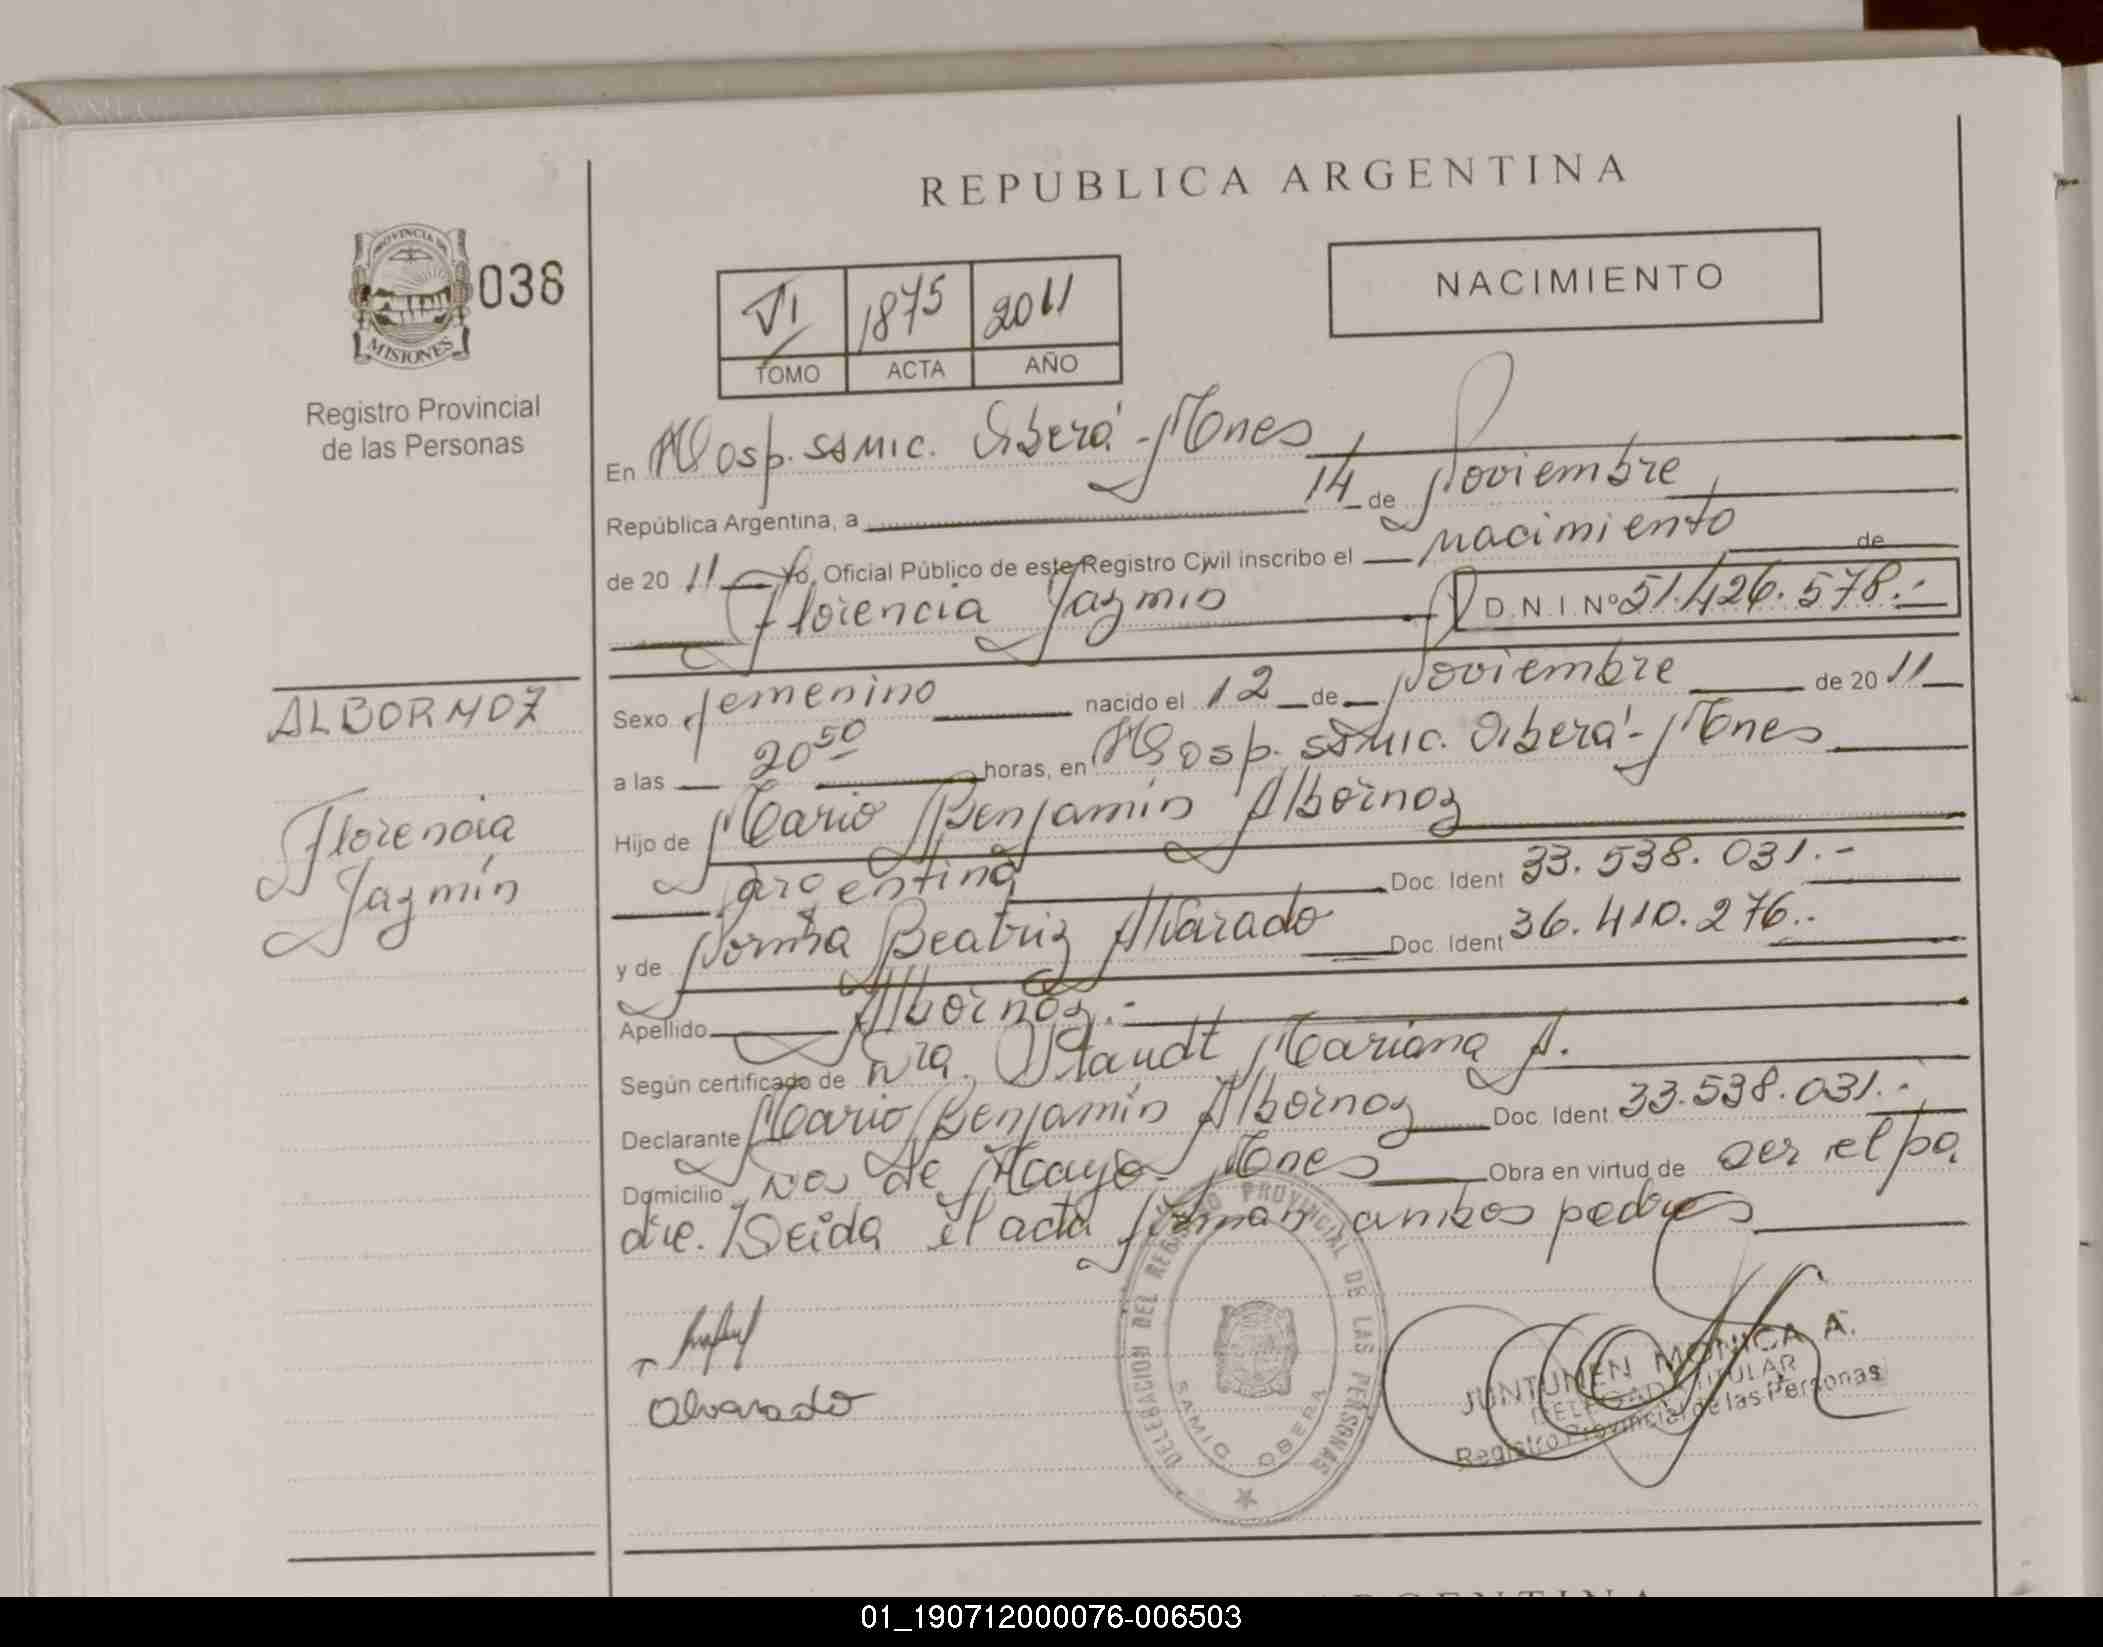 REPUBLICA ARGENTINA
PROVINCIA DE
MISIONES
038
Registro Provincial
de las Personas
VI 1875 2011
TOMO ACTA AÑO
NACIMIENTO
En Hosp. SSMIC. Oberá - Mnes
República Argentina, a 14 de Noviembre
de 2011 Yo, Oficial Público de este Registro Civil inscribo el nacimiento de
Florencia Jazmin D.N.I. Nº 51.426.578.-
ALBORNOZ
Florencia
Jazmín
Sexo femenino nacido el 12 de Noviembre de 2011
a las 20 50 horas, en Hosp. SSMIC. Oberá - Mnes
Hijo de Mario Benjamín Albornoz
argentina Doc. Ident 33.538.031.-
y de Norma Beatriz Alvarado Doc. Ident 36.410.276.-
Apellido Albornoz.-
Según certificado de Dra. Staudt Mariana A.
Declarante Mario Benjamín Albornoz Doc. Ident 33.538.031.-
Domicilio de Mayo - Mnes Obra en virtud de ser el pa
dre. Leida el acta firman ambos padres
Alvarado
DELEGACION DEL REGISTRO PROVINCIAL DE LAS PERSONAS
SAMIC OBERA
JUNTUNEN MONICA A.
DELEGADA TITULAR
Registro Provincial de las Personas
ARGENTINA
01_190712000076-006503